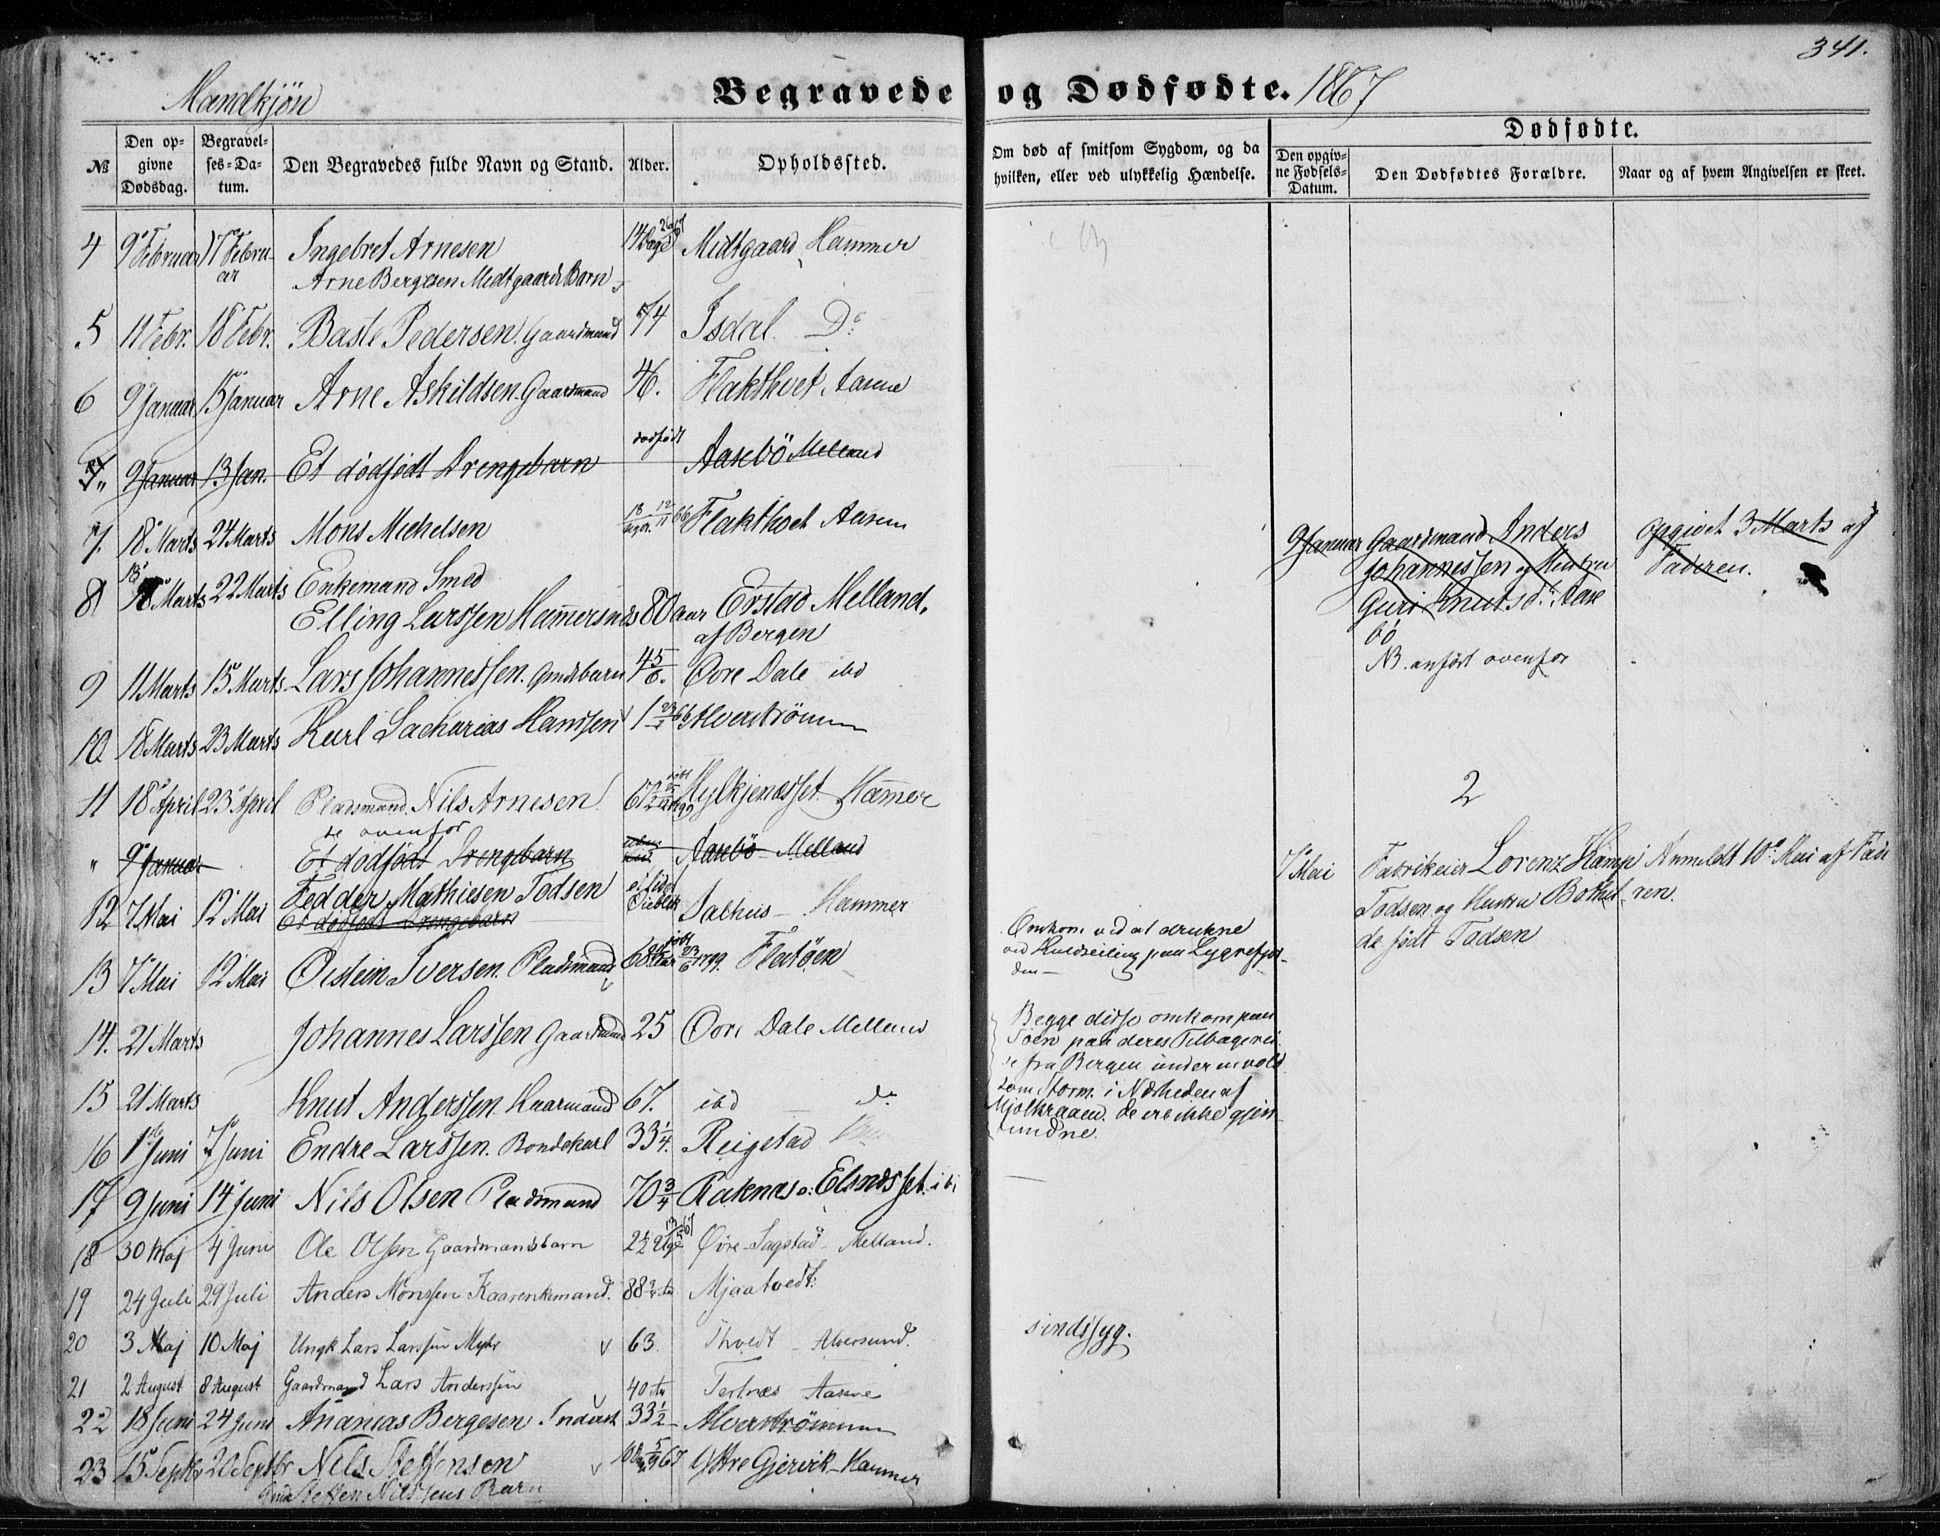 341.
Mandkjön
Begravede og Dødfødte. 1867
Dødfødte.
№ Den opgivne Dødsdag. Begravelses-Datum. Den Begravedes fulde Navn og Stand. Alder. Opholdssted. Om død af smitsom Sygdom, og da hvilken, eller ved ulykkelig Hændelse. Den opgivne Fødsels-Datum. Den Dødfødtes Forældre. Naar og af hvem Angivelsen er skeet.
4 9 Februar 17 Februar Ingebret Arnesen 14 Dage Midtgaard Hammer
Arne Bergesen Midtgaards Barn
5 11 Febr. 18 Febr. Baste Pedersen Gaardmand 74 Isdal. Do
6 9 Januar 15 Januar Arne Askildsen Gaardmand 46. Flakthvet Aasene
9 Januar 13 Jan. Et dødfødt Drengebarn dødfødt Aasebö Melland
7. 18 Marts 24 Marts Mons Michelsen Flakthvet Aasene
8 18 Marts 22 Marts Enkemand Smed
Elling Larssen Hamersnæs 80 aar Erstad Melland.
af Bergen
9 11 Marts 15 Marts Lars Johannessen. Gmdbarn 4 5/6. Övre Dale ibd
10. 18 Marts 23 Marts Karl Sacharias Hanssen 1 Alverströmmen
11 18 April 23 April Pladsmand Nils Arnesen 67 Mylkjenæsset. Hamer
se ovenfor
" 9 Januar Et dødfødt Drengebarn Aasebö Melland
12 7 Mai 12 Mai Fedder Mathiesen Todsen et lidet Öieblik Salhus - Hammer
Et dødfødt Drengebarn
13 7 Mai 12 Mai Öistein Iversen. Pladsmand 68 Flatöen
14. 21 Marts Johannes Larssen Gaardmand 25 Övre Dale Melland
15 21 Marts Knut Anderssen Kaarmand 67. ibd do
16 1 Juni 7 Juni Endre Larssen. Bondekarl 33 1/4. Reigstad
17 9 Juni 14 Juni Nils Olsen Pladsmand 70 3/4 Raknæs o: Elsnæsset ibi
18 30 Maj 4 Juni Ole Olsen Gaardmandsbarn Øvre-Sagstad - Melland.
19 24 Juli 29 Juli Anders Monssen Kaarenkemand. 88 Mjaatvedt:
20 3 Maj 10 Maj Ungk Lars Larssen Myhr 63. Thvedt - Alversund.
21 2 August 8 August Gaardmand Lars Anderssen 40 Aar Tertnæs Aasene
22 18 Juni 24 Juni Ananias Bergesen Inderst 33 1/2 Alverströmmen
23 15 Septbr 20 Septbr Nils Steffensen Yttre Gjervik - Hammer
Gmd Steffen Nilssens Barn
9 Januar Gaardmand Anders
Johannessen og Hustru
Guri Knutsd: Aase
bö
NB. anført ovenfor
Opgivet 3 Marts af
Faderen.
2
7 Mai Fabrikeier Lorenz Kamp
Todsen og Hustru Bothil
de født Todsen
Anmeldt 10 Mai af Fade
ren.
Omkom ved at drukne
ved Kuldseiling paa Lygrefjor
den -
Begge disse omkom paa
Söen paa deres Tilbagerei
se fra Bergen under en vold
som Storm. i Nærheden af
Mjölkraaen. de ere ikke gjen
fundne.
sindssyg.